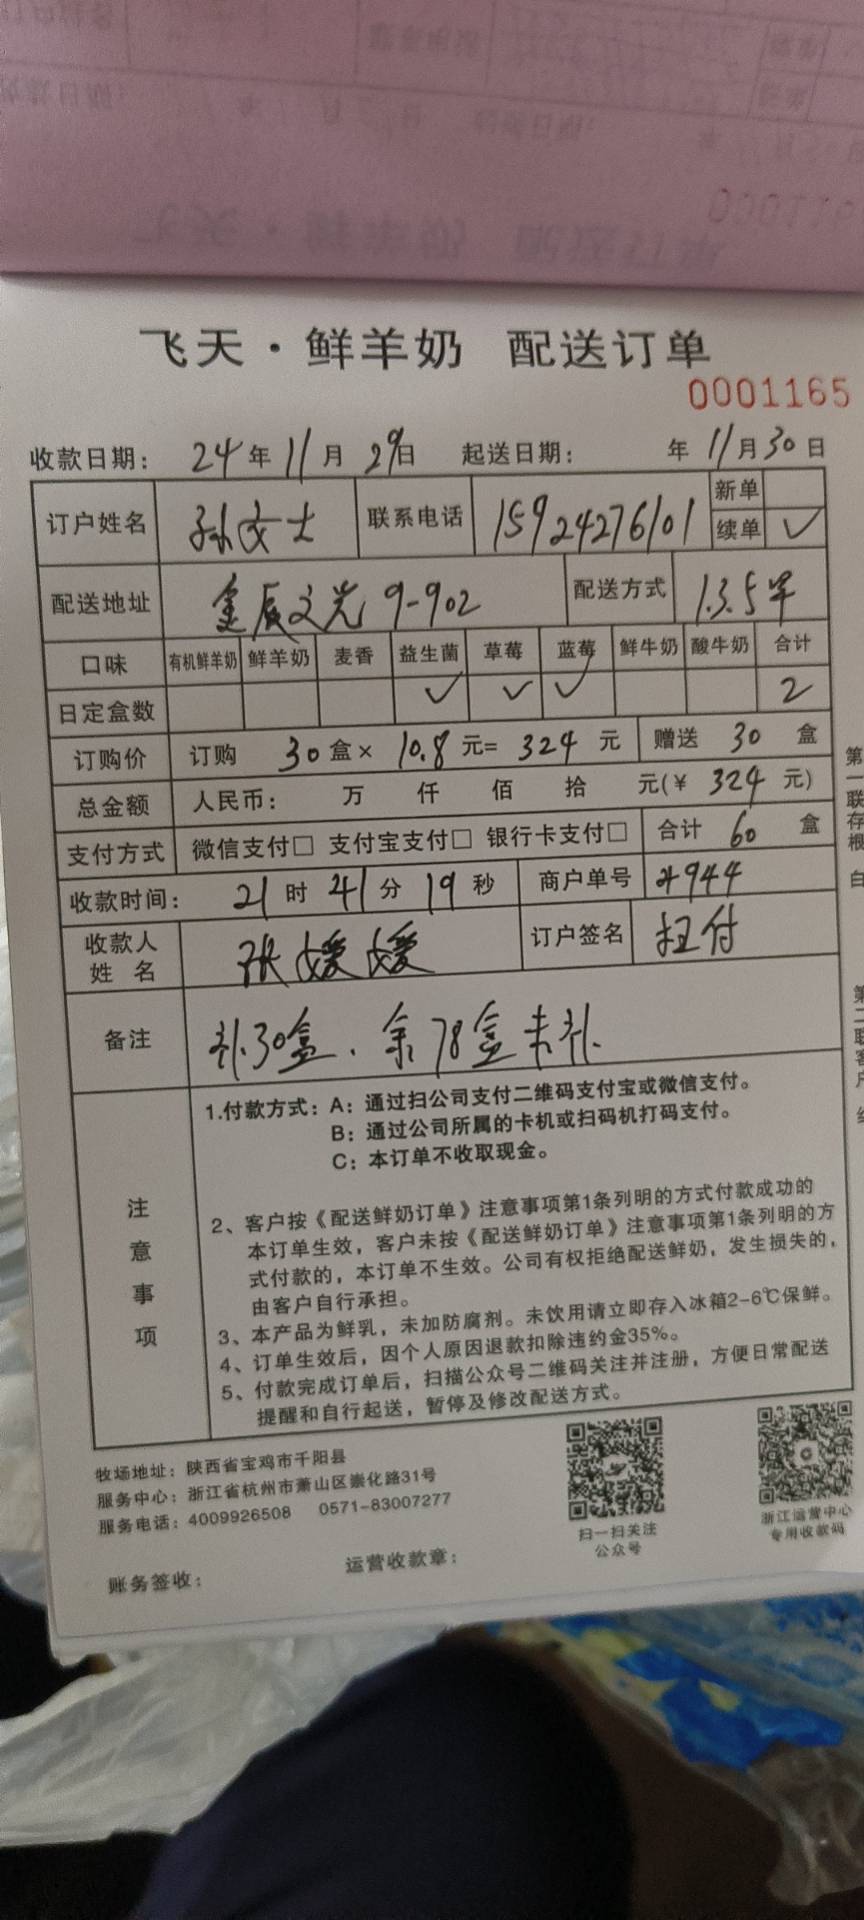 飞天·鲜羊奶 配送订单
0001165
收款日期： 24年11月29日 起送日期： 年11月30日
订户姓名 孙女士 联系电话 15924276101 新单
续单 ✓
配送地址 金辰文光 9-902 配送方式 1.3.5早
口味 有机鲜羊奶 鲜羊奶 麦香 益生菌 草莓 蓝莓 鲜牛奶 酸牛奶 合计
日定盒数 ✓ ✓ ✓ 2
订购价 订购 30盒× 10.8元= 324元 赠送 30 盒
总金额 人民币： 万 仟 佰 拾 元(￥ 324 元)
支付方式 微信支付□ 支付宝支付□ 银行卡支付□ 合计 60 盒
收款时间： 21时 41分 19秒 商户单号 4944
收款人姓名 张媛媛 订户签名 扫付
备注 补30盒、余78盒未补
注意事项
1.付款方式：A：通过扫公司支付二维码支付宝或微信支付。
B：通过公司所属的卡机或扫码机打码支付。
C：本订单不收取现金。
2、客户按《配送鲜奶订单》注意事项第1条列明的方式付款成功的
本订单生效，客户未按《配送鲜奶订单》注意事项第1条列明的方
式付款的，本订单不生效。公司有权拒绝配送鲜奶，发生损失的，
由客户自行承担。
3、本产品为鲜乳，未加防腐剂。未饮用请立即存入冰箱2-6℃保鲜。
4、订单生效后，因个人原因退款扣除违约金35%。
5、付款完成订单后，扫描公众号二维码关注并注册，方便日常配送
提醒和自行起送，暂停及修改配送方式。
牧场地址：陕西省宝鸡市千阳县
服务中心：浙江省杭州市萧山区崇化路31号
服务电话：4009926508 0571-83007277
扫一扫关注
公众号
浙江运营中心
专用收款码
账务签收： 运营收款章：
第一联存根 白
第二联客户